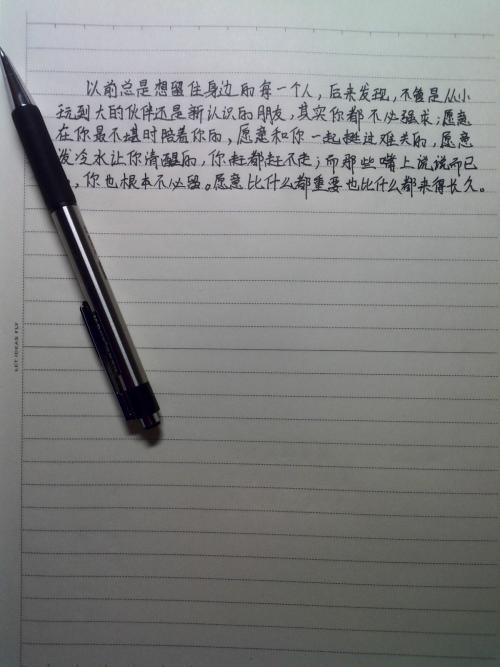 以前总是想留住身边的每一个人，后来发现，不管是从小
玩到大的伙伴还是新认识的朋友，其实你都不必强求；愿意
在你最不堪时陪着你的，愿意和你一起挺过难关的，愿意
泼冷水让你清醒的，你赶都赶不走；而那些嘴上说说而已
，你也根本不必留。愿意比什么都重要也比什么都来得长久。
LET IDEAS FLY